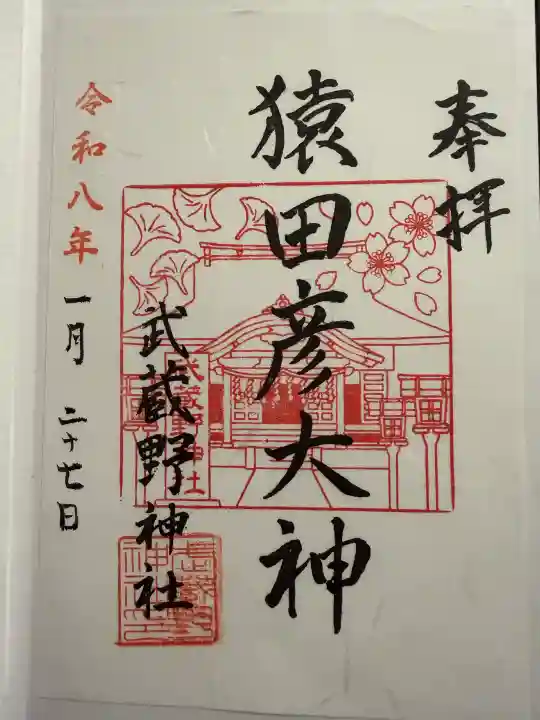 奉拝
猿田彦大神
武蔵野神社
武蔵野神社
令和八年
一月二十七日